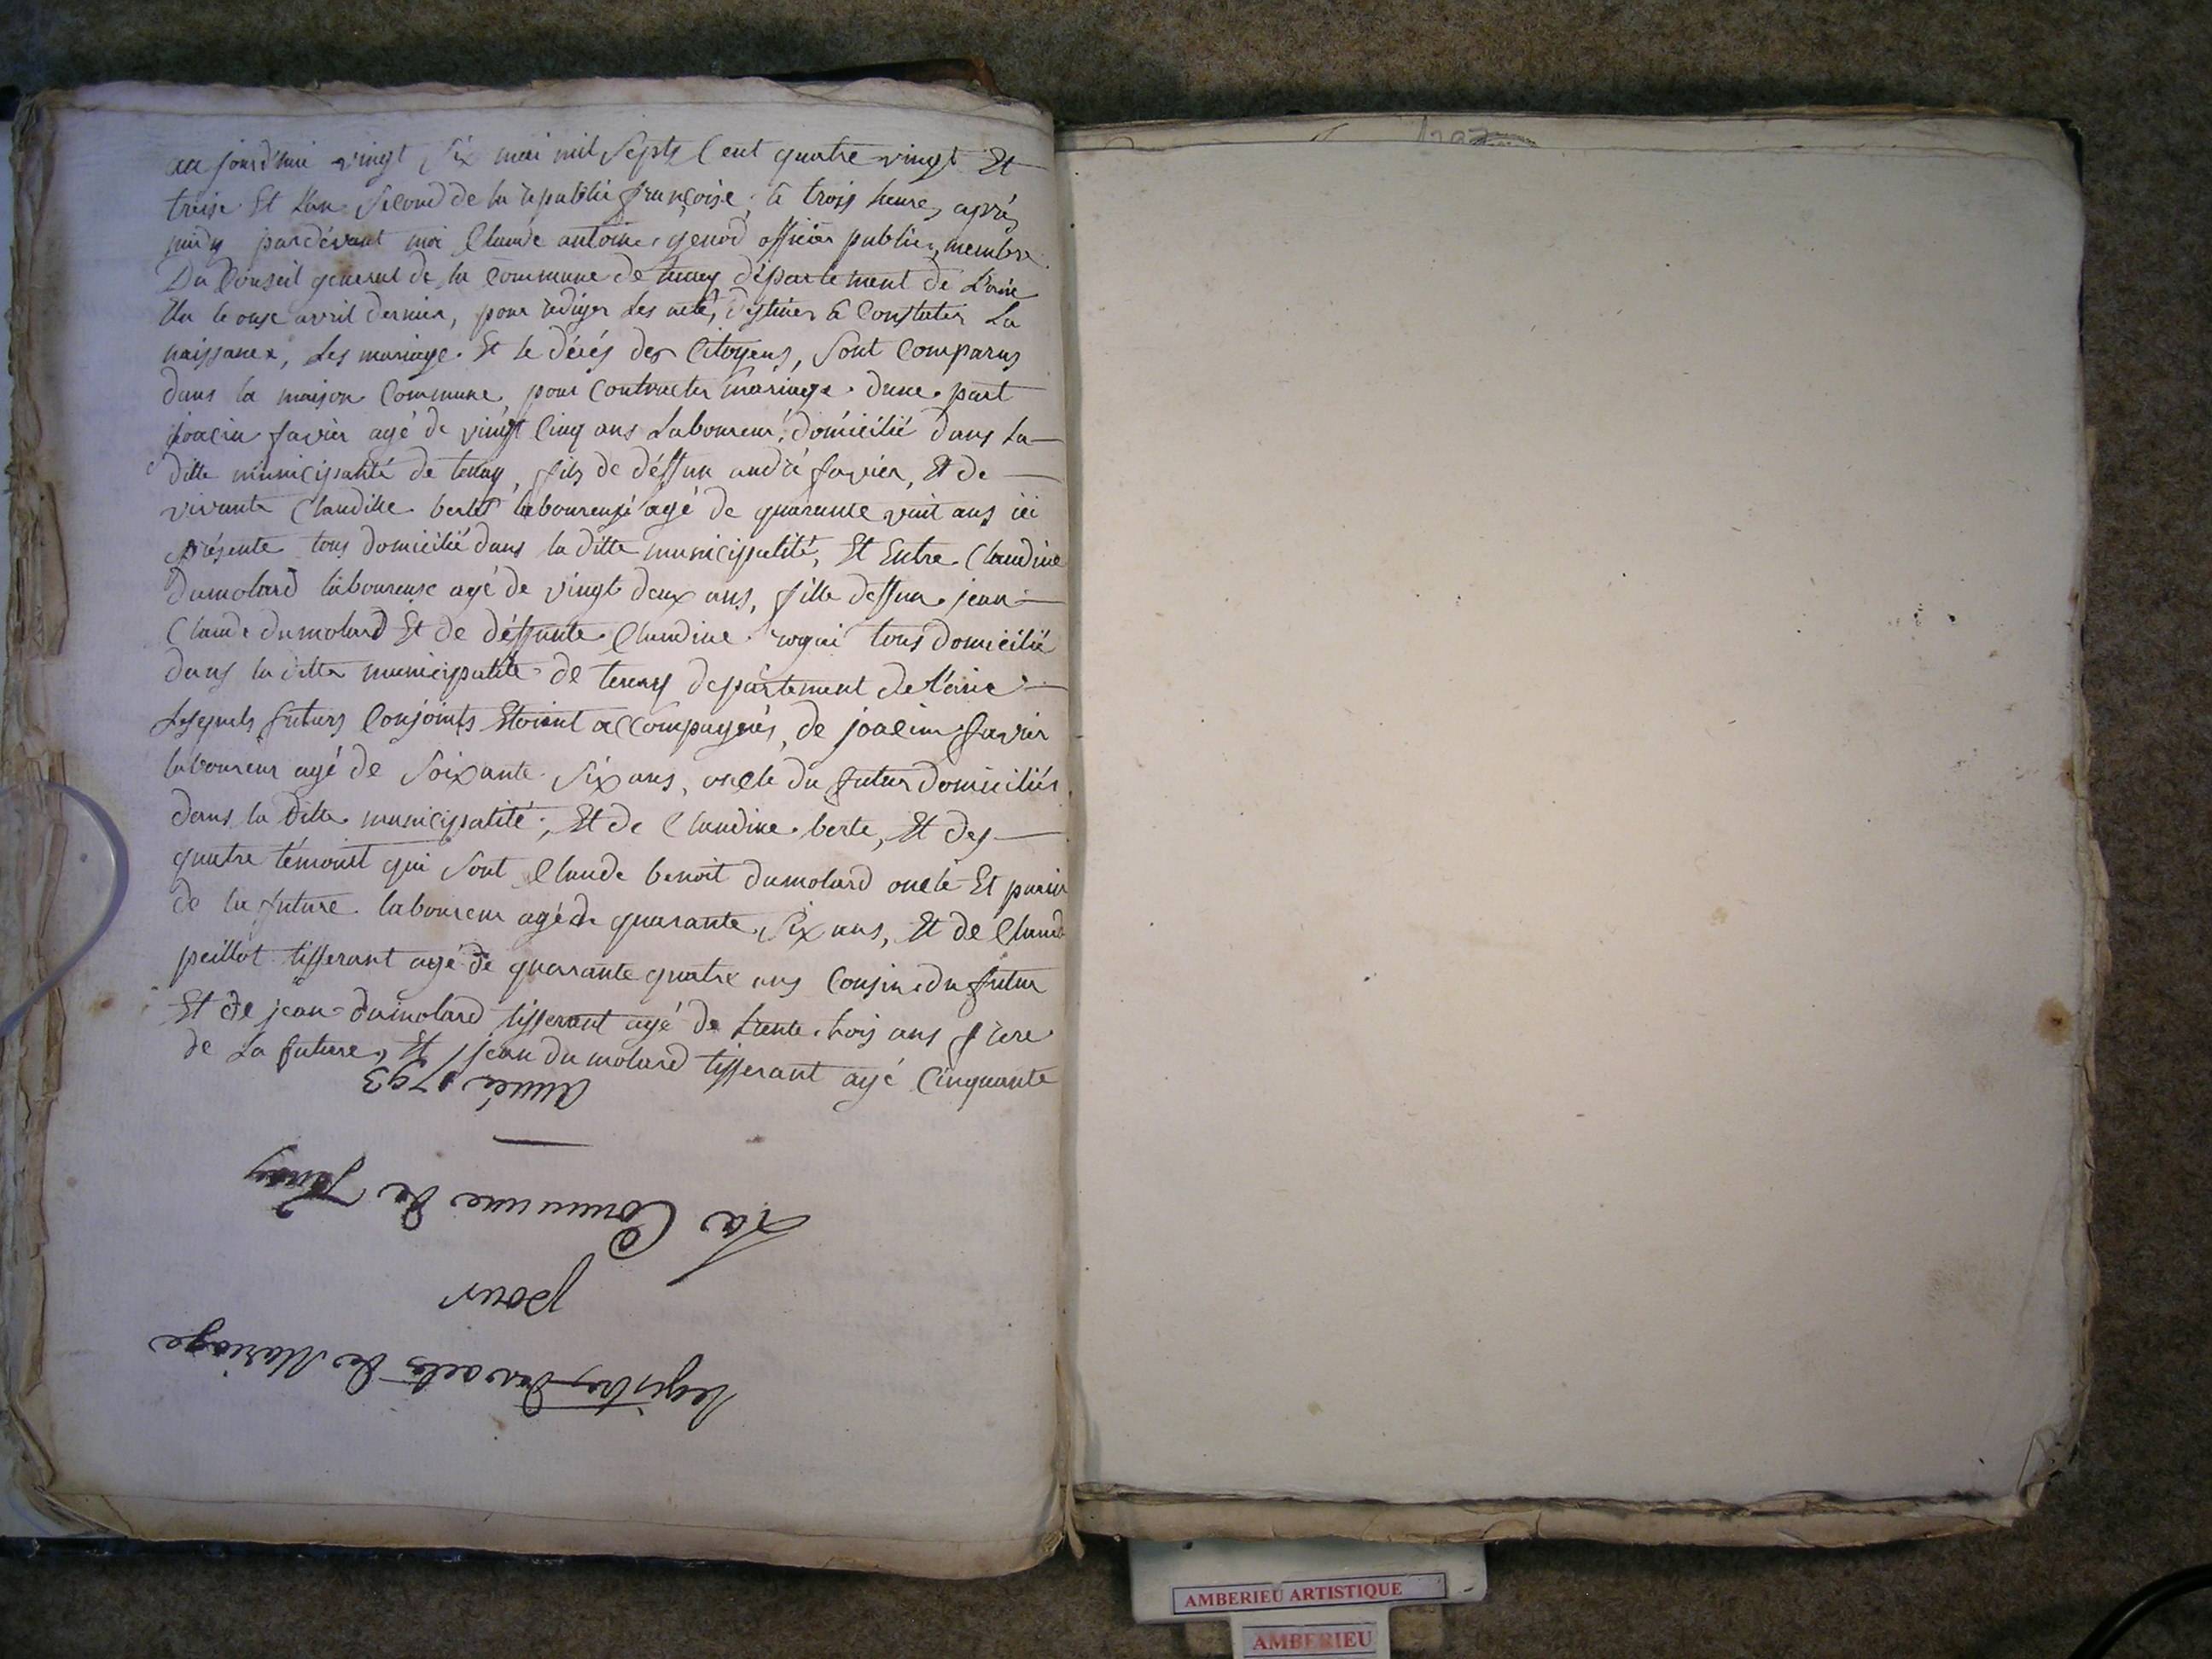 au jourd'hui vingt Six mai mil Septs Cent quatre vingt Et
treise Et L'an Second de la republiè françoise, a trois heures aprés
midy pardévant moi Claude antoine genod officier public, membre
Du Conseil general de la commune de tenay département de L'ain
élu le onze avril dernier, pour rediger Les acte, destinés a Constater La
naissance, Les mariage Et le décés des Citoyens, Sont Comparus
dans la maison Commune pour Contracter mariage d'une part
joacin favier agé de vingt Cinq ans Laboureur, domicilié dans La
ditte municipalité de tenay, fils de déffun andré favier, Et de
vivante Claudine bertet laboureuse agé de quarante vuit ans ici
présente tous domicilié dans la ditte municipalité, Et Entre Claudine
Dumolard laboureuse agé de vingt deux ans, fille deffun jean
Claude dumolard Et de déffunte Claudine tous domicilié
dans la ditte municipalité de tenay département de l'ain
Lesquels futurs Conjoints Etoient accompagnés, de joacim favier
laboureur agé de Soixante Six ans, oncle du futur domiciliés
dans la ditte municipalité, Et de Claudine berte, Et des
quatre témoint qui Sont Claude benoit dumolard oncle Et parin
de la future laboureur agé de quarante Six ans, Et de Claude
peillot tisserant agé de quarante quatre ans Cousin du futur
Et de jean dumolard tisserant agé de trente trois ans frere
de La future, Et jean du molard tisserant agé Cinquante
Année 1793
La Commune de Tenay
pour
Registre des actes de Mariage
AMBERIEU ARTISTIQUE
AMBERIEU